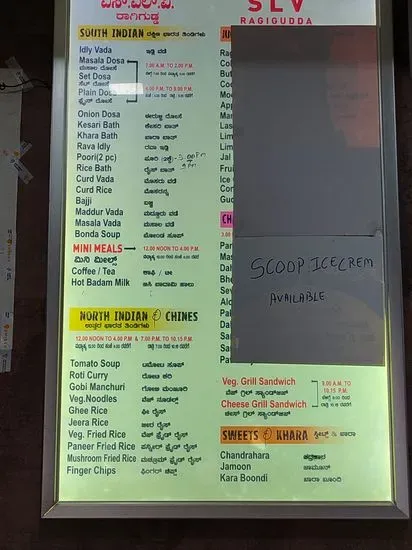 ಎಸ್.ಎಲ್.ವಿ.
ರಾಗಿಗುಡ್ಡ
SLV
RAGIGUDDA
SOUTH INDIAN ದಕ್ಷಿಣ ಭಾರತ ತಿಂಡಿಗಳು
Idly Vada ಇಡ್ಲಿ ವಡೆ
Masala Dosa
ಮಸಾಲೆ ದೋಸೆ
7.00 A.M. TO 2.00 P.M.
Set Dosa
ಸೆಟ್ ದೋಸೆ
Plain Dosa
ಪ್ಲೈನ್ ದೋಸೆ
4.00 P.M. TO 9.00 P.M.
Onion Dosa ಈರುಳ್ಳಿ ದೋಸೆ
Kesari Bath ಕೇಸರಿ ಬಾತ್
Khara Bath ಖಾರಾ ಬಾತ್
Rava Idly ರವಾ ಇಡ್ಲಿ
Poori(2 pc) ಪೂರಿ
Rice Bath ರೈಸ್ ಬಾತ್
Curd Vada ಮೊಸರು ವಡೆ
Curd Rice ಮೊಸರನ್ನ
Bajji ಬಜ್ಜಿ
Maddur Vada ಮದ್ದೂರು ವಡೆ
Masala Vada ಮಸಾಲೆ ವಡೆ
Bonda Soup ಬೋಂಡ ಸೂಪ್
MINI MEALS 12.00 NOON TO 4.00 P.M.
ಮಿನಿ ಮೀಲ್ಸ್
Coffee / Tea ಕಾಫಿ / ಟೀ
Hot Badam Milk ಬಿಸಿ ಬಾದಾಮಿ ಹಾಲು
NORTH INDIAN & CHINES
ಉತ್ತರ ಭಾರತ ತಿಂಡಿಗಳು
12.00 NOON TO 4.00 P.M & 7.00 P.M TO 10.15 P.M.
Tomato Soup ಟಮೋಟ ಸೂಪ್
Roti Curry ರೋಟಿ ಕರಿ
Gobi Manchuri ಗೋಬಿ ಮಂಚೂರಿ
Veg.Noodles ವೆಜ್ ನೂಡಲ್ಸ್
Ghee Rice ಘೀ ರೈಸ್
Jeera Rice ಜೀರ ರೈಸ್
Veg. Fried Rice ವೆಜ್ ಫ್ರೈಡ್ ರೈಸ್
Paneer Fried Rice ಪನ್ನೀರ್ ಫ್ರೈಡ್ ರೈಸ್
Mushroom Fried Rice ಮಶ್ರೂಮ್ ಫ್ರೈಡ್ ರೈಸ್
Finger Chips ಫಿಂಗರ್ ಚಿಪ್ಸ್
SCOOP ICECREM
AVAILABLE
Veg. Grill Sandwich
ವೆಜ್ ಗ್ರಿಲ್ ಸ್ಯಾಂಡ್‌ವಿಜ್
Cheese Grill Sandwich
ಚೀಸ್ ಗ್ರಿಲ್ ಸ್ಯಾಂಡ್‌ವಿಜ್
9.00 A.M. TO
10.15 P.M.
SWEETS & KHARA ಸ್ವೀಟ್ಸ್ & ಖಾರಾ
Chandrahara ಚಂದ್ರಹಾರ
Jamoon ಜಾಮೂನ್
Kara Boondi ಖಾರಾ ಬೂಂದಿ